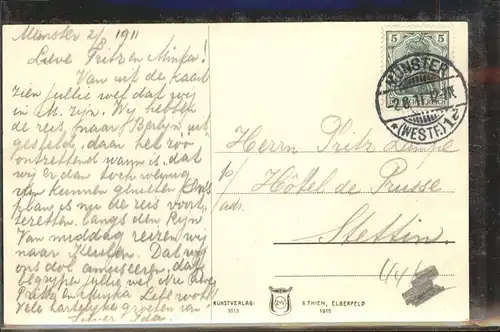 Münster 2/8 1911
Lieve Fritz en Minka!
Van uit de kaart
zien jullie wel dat wij
in M. zijn. Wij hebben
de reis naar Berlijn uit
gesteld, daar het zoo
ontzettend warm is, dat
wij er dan toch weinig
van kunnen genieten.
plan is nu de reis voort
te zetten langs den Rijn
Van middag reizen wij
naar Keulen. Dat wij
ons dol amuseeren, dat
begrijpen jullie wel. Nu lieve
Fritz en Minka
vele hartelijke groeten van
Ida
5
5
MÜNSTER
2.8.11
*(WESTF.)1
Herrn Fritz
Hôtel de Prusse
Stettin
KUNSTVERLAG
3013
S. THIEN, ELBERFELD
1910